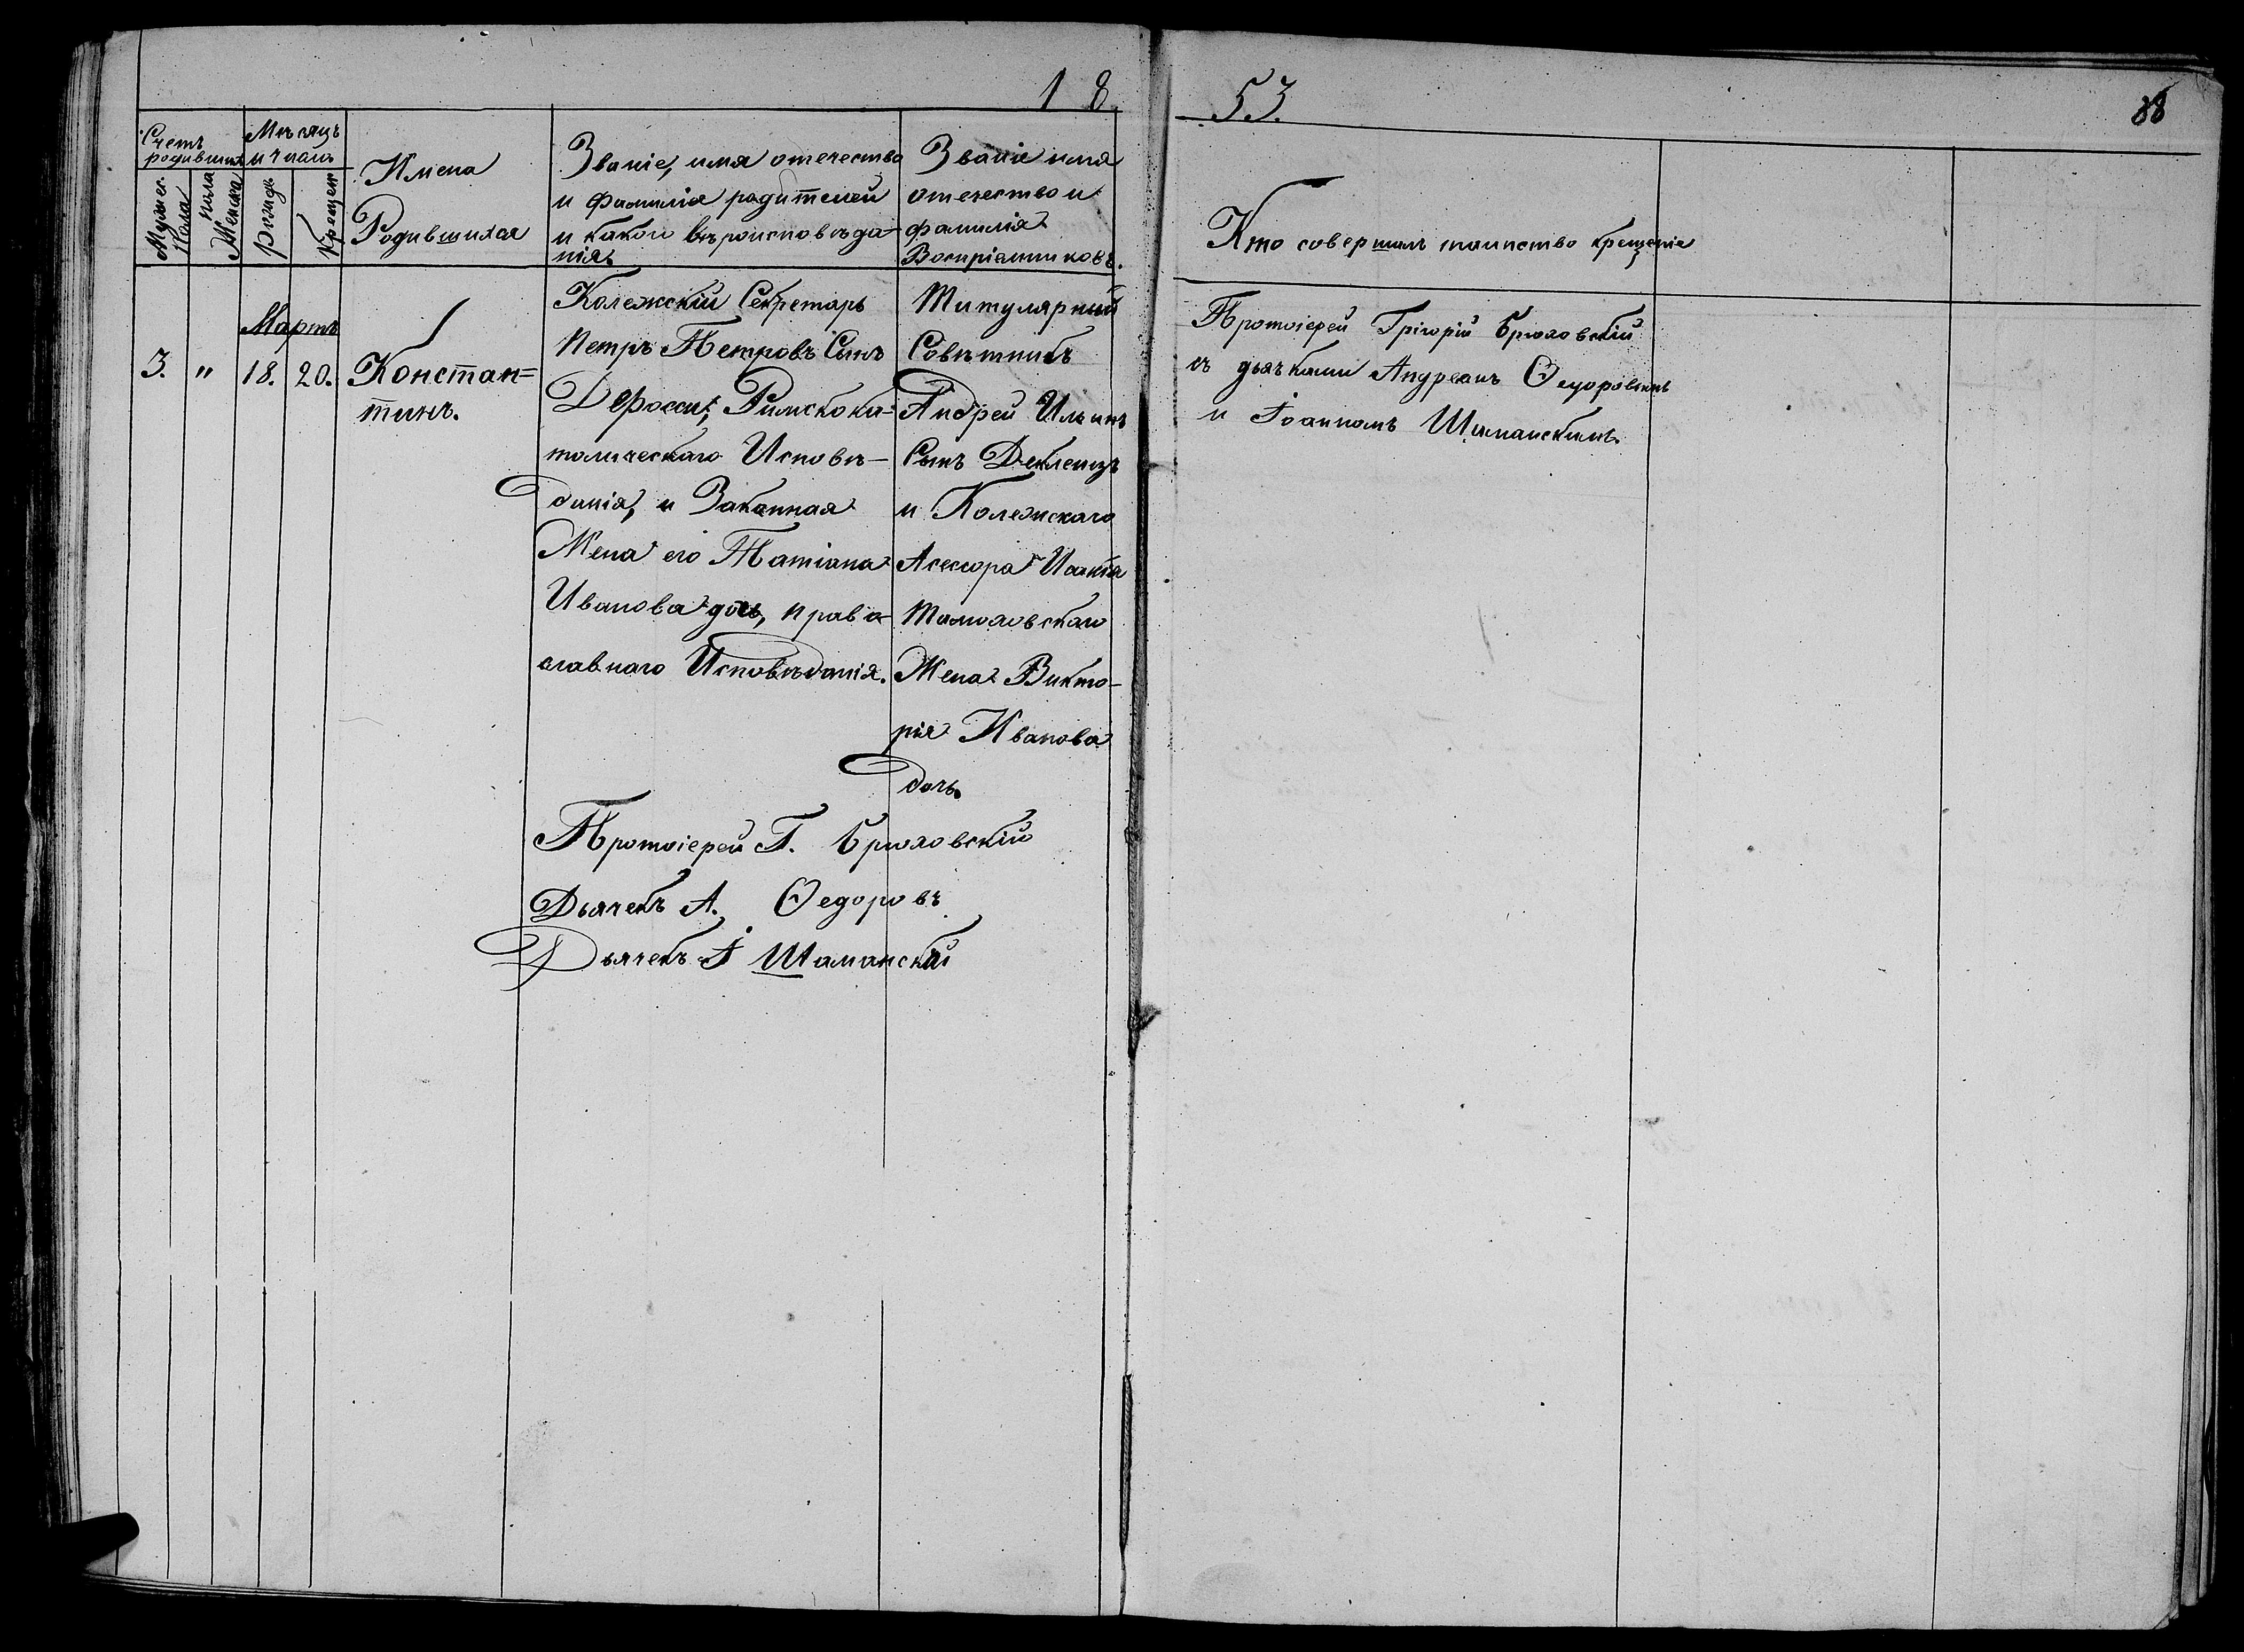 18
53.
88
Счетъ родившихся
Мѣсяцъ и число
Мужес. Пола
Женска пола
Рожде
Крещен
Имена
Родившихся
Званіе, имя отечество
и фамилія родителей
и какои вѣроисповѣда-
нія.
Званіе имя
отечество и
фамилія
Воспріемниковъ.
Кто совершалъ таинство крещенія
Мартъ
3. " 18. 20. Констан=
тинъ.
Колежскій Секретарь
Петръ Петровъ Сынъ
ДеРосси; Римскока-
толическаго Исповѣ-
данія, и Законная
Жена его Татіана
Иванова дочь, право
славнаго Исповѣданія.
Титулярный
Совѣтникъ
Андрей Ильинъ
Сынъ
и Колежскаго
Асессора
Жена Викто-
рія Иванова
дочь.
Протоіерей Грігорій Брюховскій
съ дьячками Андреемъ Ѳедоровымъ
и Іоанномъ Шаманскимъ.
Протоіерей Г. Брюховскій
Дьячекъ А. Ѳедоровъ
Дьячекъ І Шаманскій